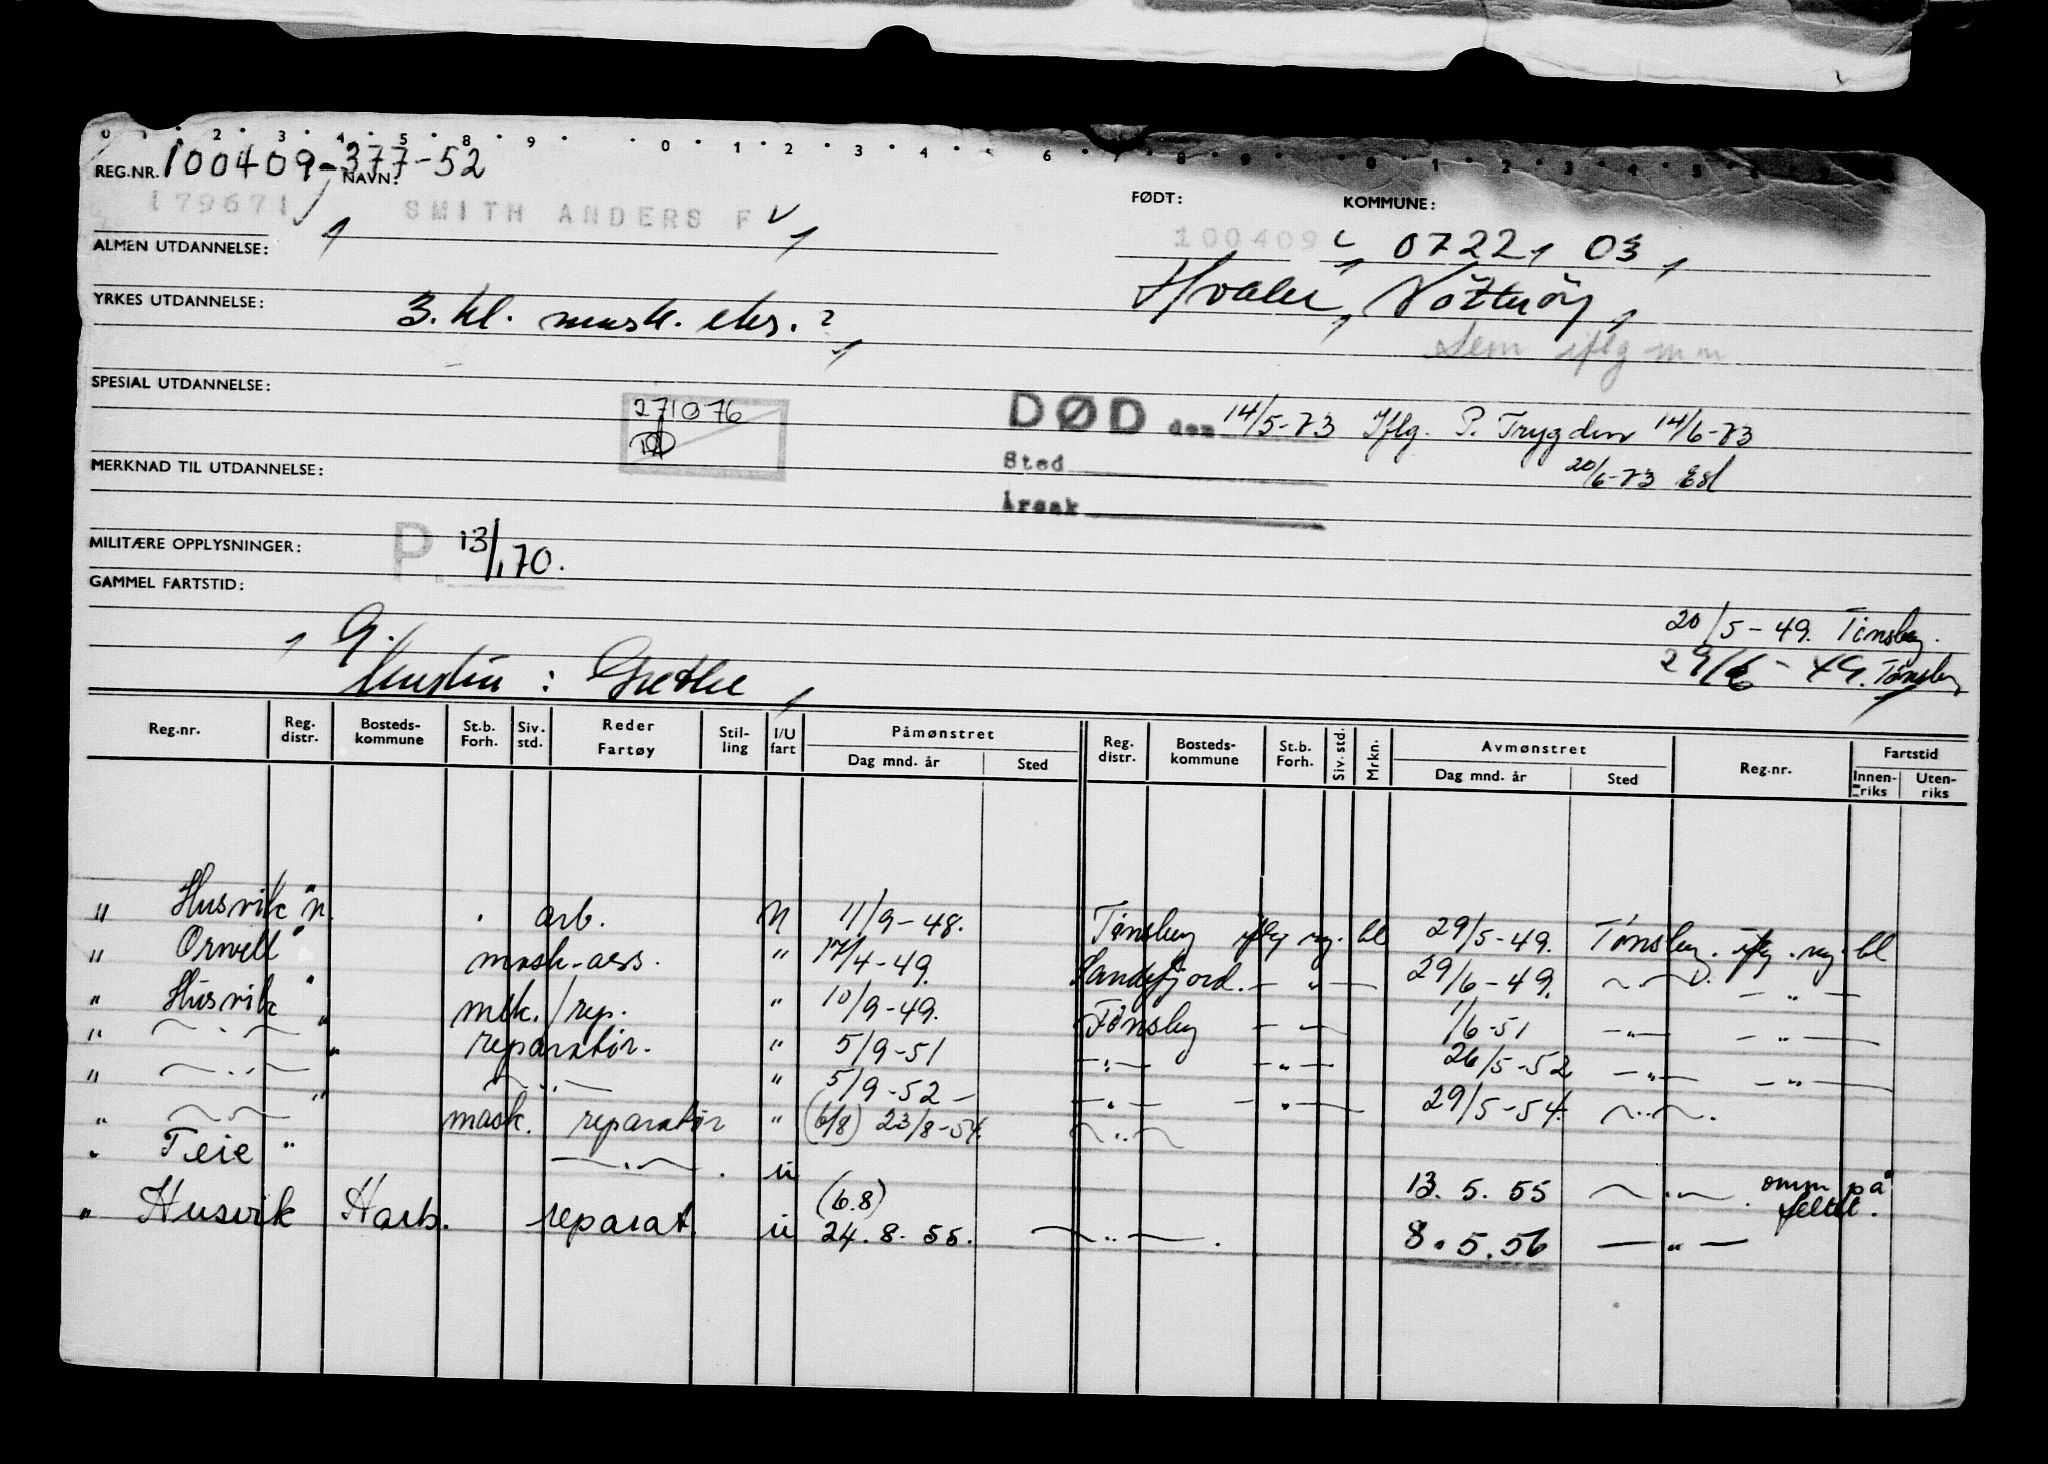 0 1 2 3 4 5 8 9 0 1 2 3 4 6 7 8 9 0 1 2 3 4 5 6 7
REG.NR. 100409-377-52
NAVN: FØDT: KOMMUNE:
179671 SMITH ANDERS F 100409 0722, 03,
ALMEN UTDANNELSE:
Hvaler, Nötteröy,
YRKES UTDANNELSE: 3. kl. mask. eks. ?
Sem iflg m m
SPESIAL UTDANNELSE:
271076
DØD den 14/5-73 Iflg. P. Trygden 14/6-73
Sted 20/6-73
MERKNAD TIL UTDANNELSE:
Årsak
MILITÆRE OPPLYSNINGER: P. 13/1 70.
GAMMEL FARTSTID:
20/5-49. Tønsberg.
G.
29/6-49. Tønsberg
Hustru: Grethe,
Reg.nr. Reg. distr. Bosteds-kommune St.b. Forh. Siv. std. Reder Fartøy Stil-ling I/U fart Påmønstret Dag mnd. år Sted Reg. distr. Bosteds-kommune St.b. Forh. Siv. std. Mrkn. Avmønstret Dag mnd. år Sted Reg.nr. Fartstid Innen-riks Uten-riks
" Husvik "n. arb. U 11/9-48. Tønsberg iflg reg. bl 29/5-49. Tønsberg. iflg. reg. bl
" Orwell " mask-ass. " 17/4-49. Sandefjord. — " — 29/6-49. — " — — " —
" Husvik " mek./rep. " 10/9-49. Tønsberg — " — 1/6-51 — " — — " —
" — " — " reparatør. " 5/9-51 — " — — " — 26/5-52 — " — — " —
" — " — " — " — " 5/9-52 — — " — — " — 29/5-54. — " —.
" — " — mask. reparatør " (6/8) 23/8-54. — " —
" Teie " — " —. u 13. 5. 55 — " —. omm på feltet.
" Husvik Harb. reparat. u (6.8) 24. 8. 55. — " —. 8. 5. 56 — " —